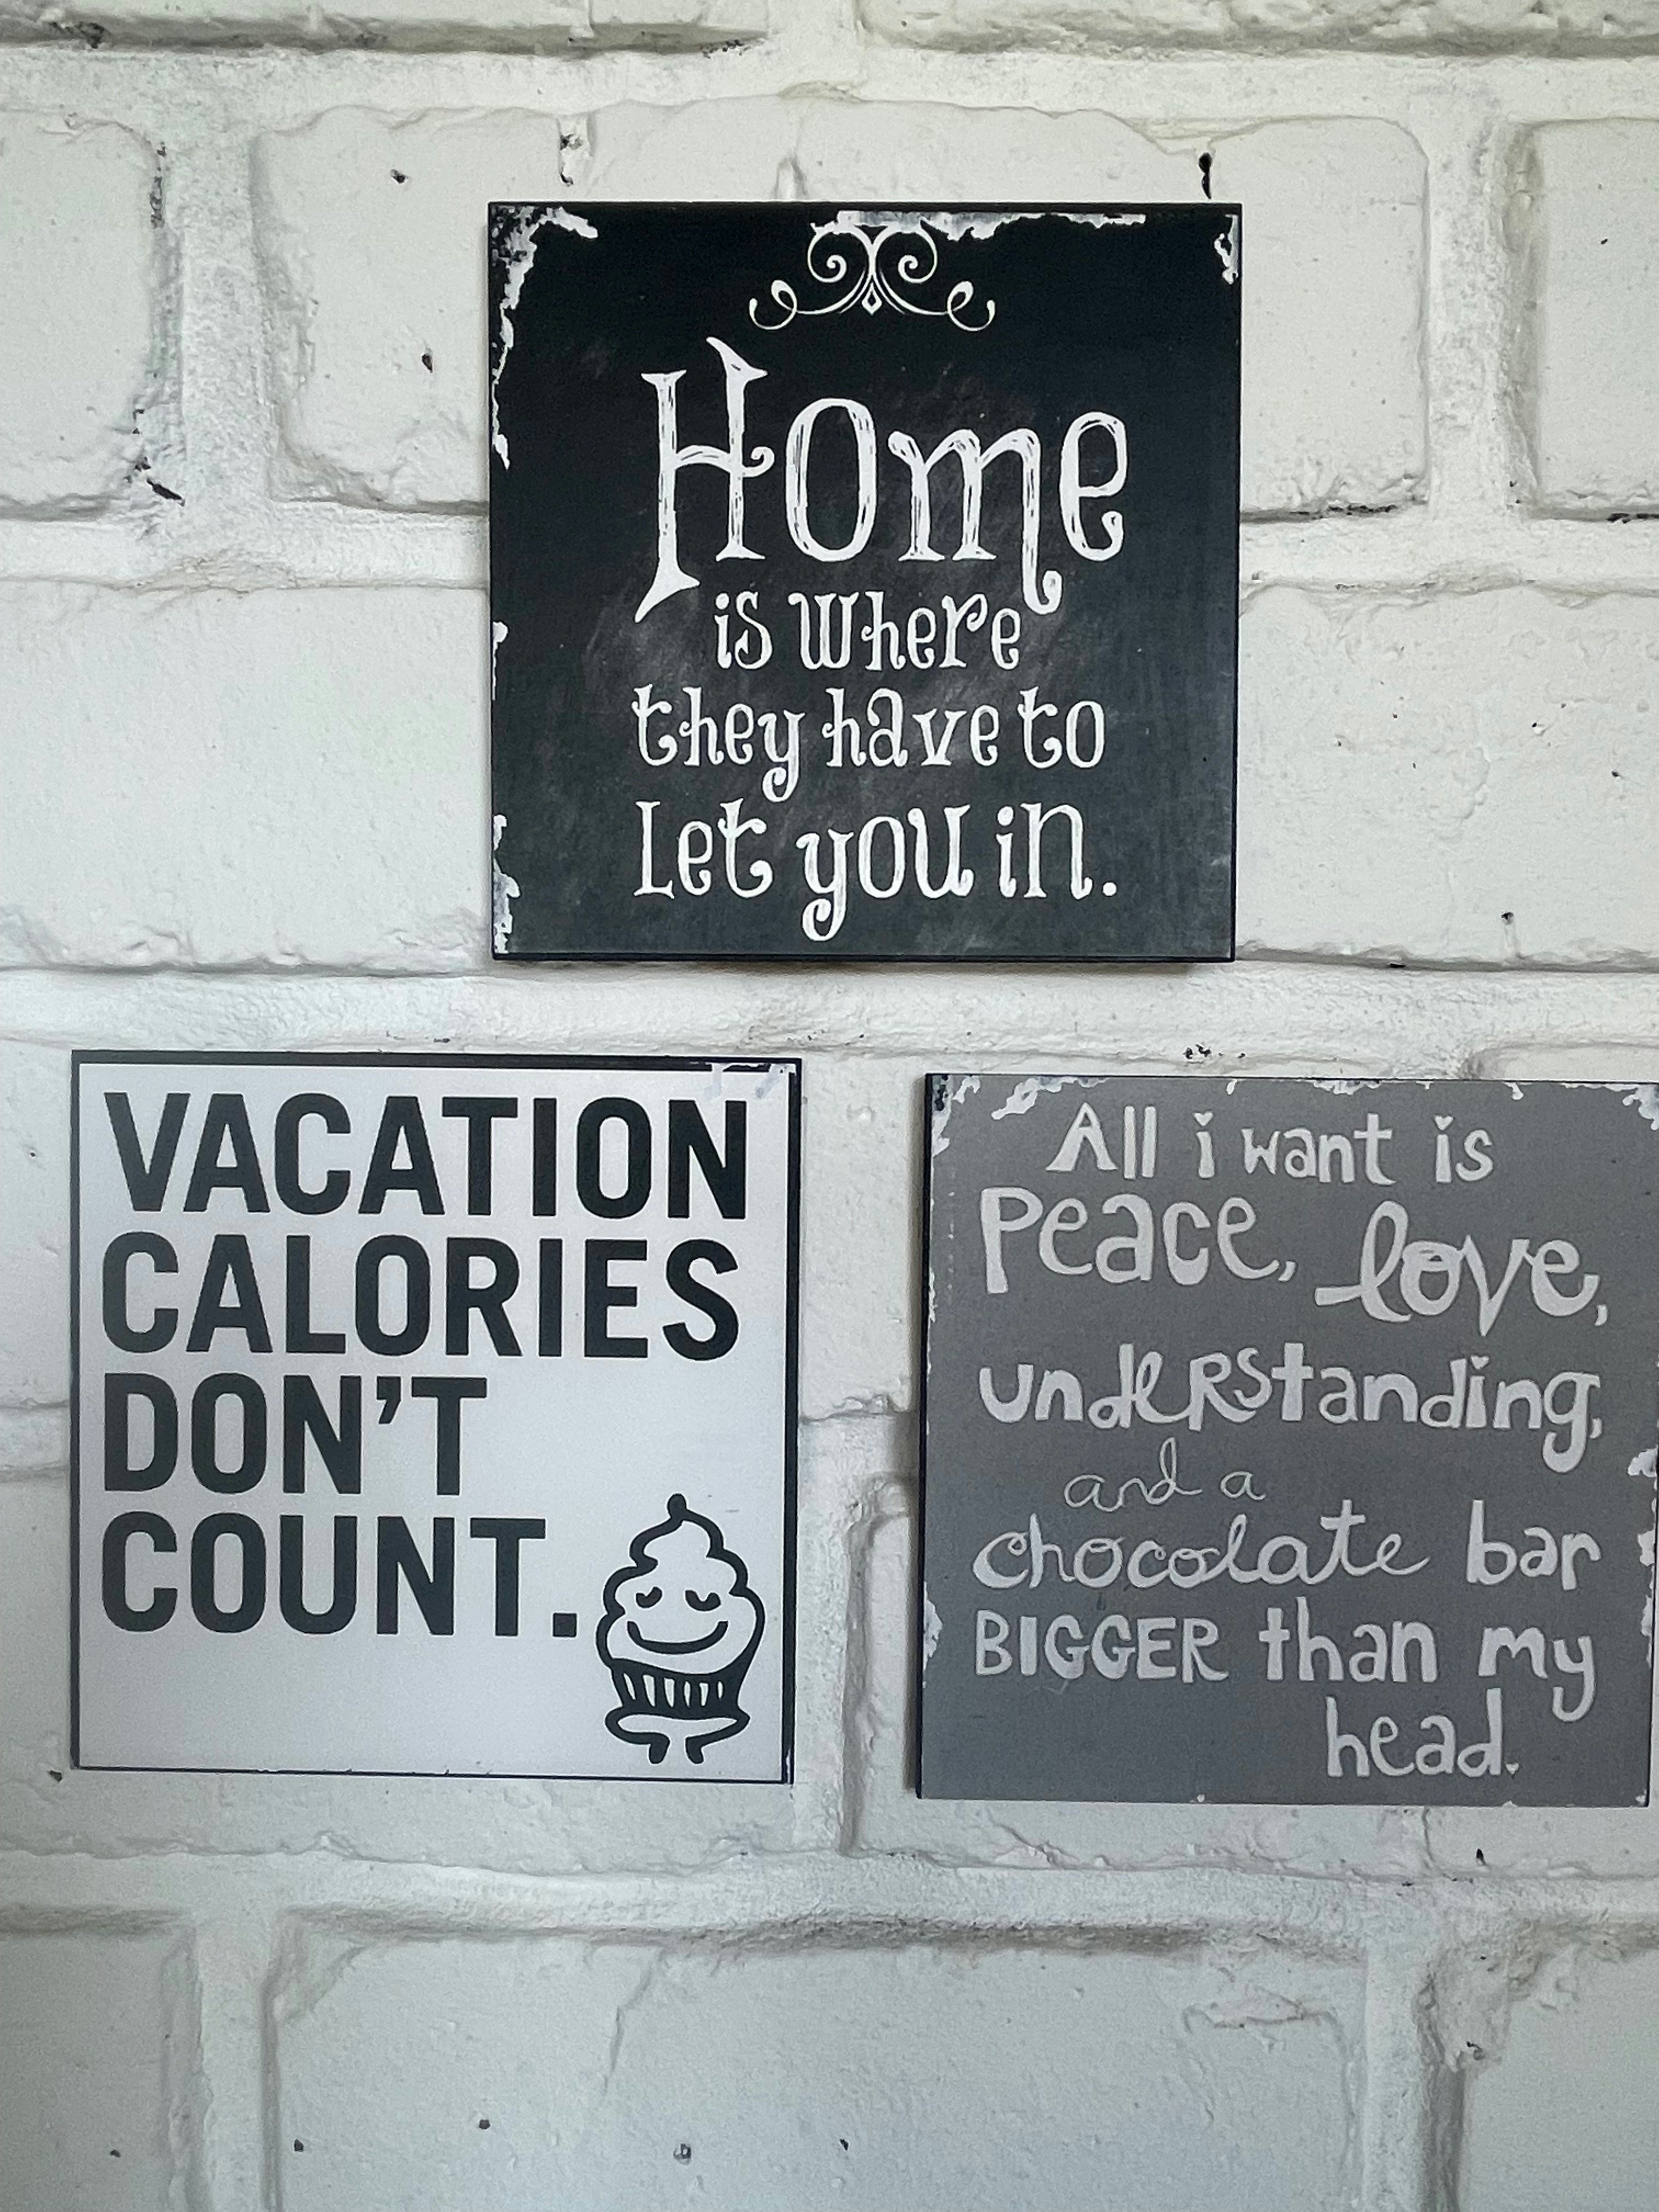 Home
is where
they have to
Let you in.
VACATION
CALORIES
DON'T
COUNT.
All i want is
Peace, love,
undeRStanding,
and a
chocolate bar
BIGGER than my
head.